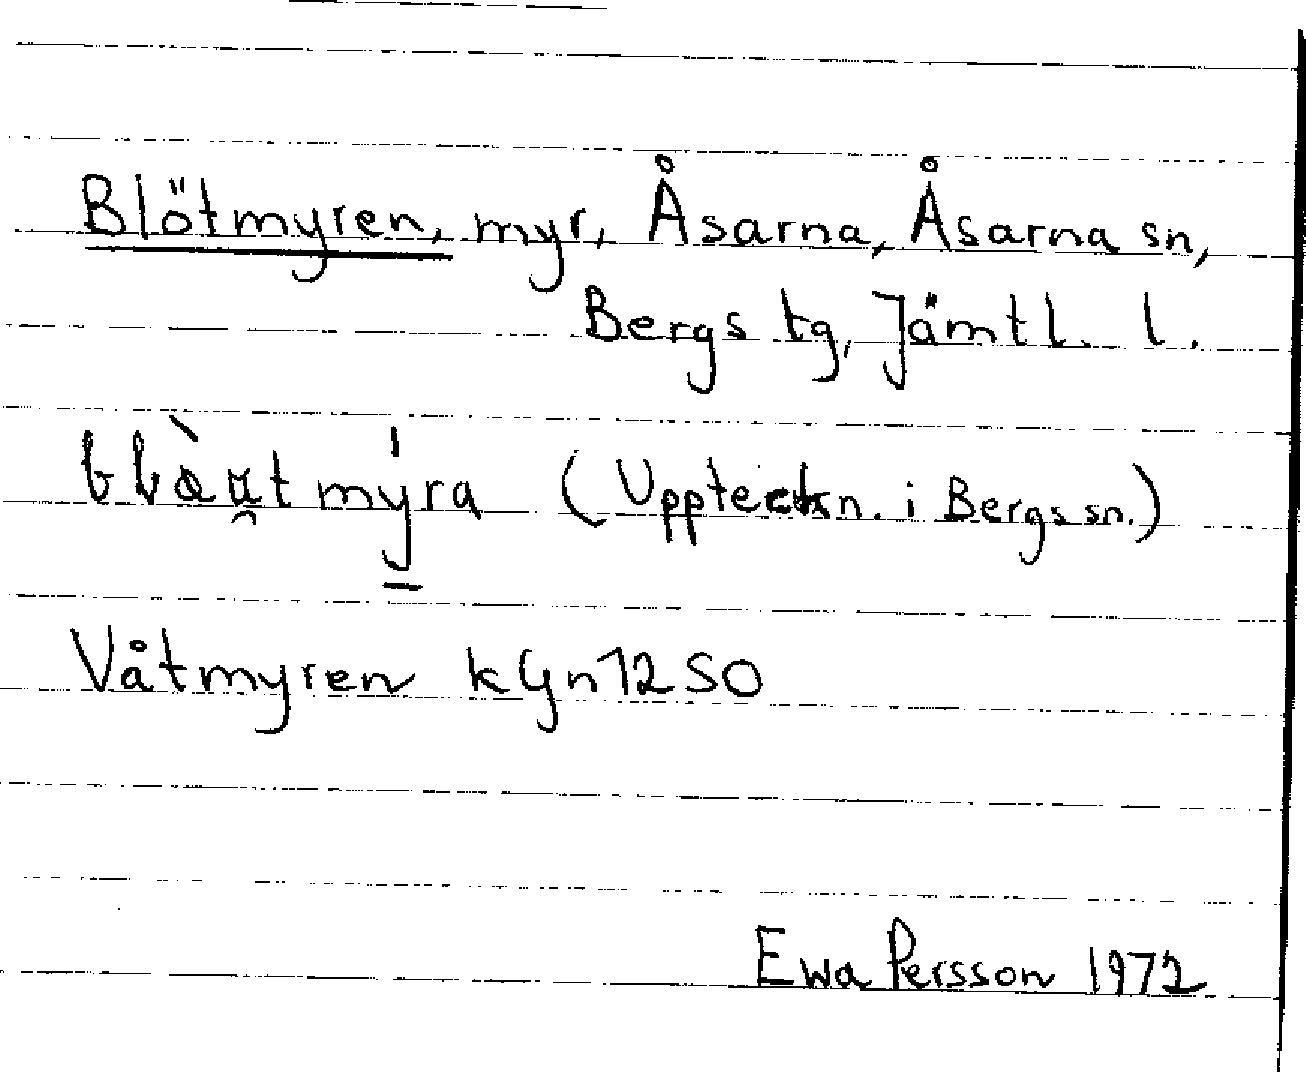 Blötmyren, myr, Åsarna, Åsarna sn,
Bergs tg, Jämtl. l.
(Uppteckn. i Bergs sn.)
Våtmyren k Gn 12 SO
Ewa Persson 1972